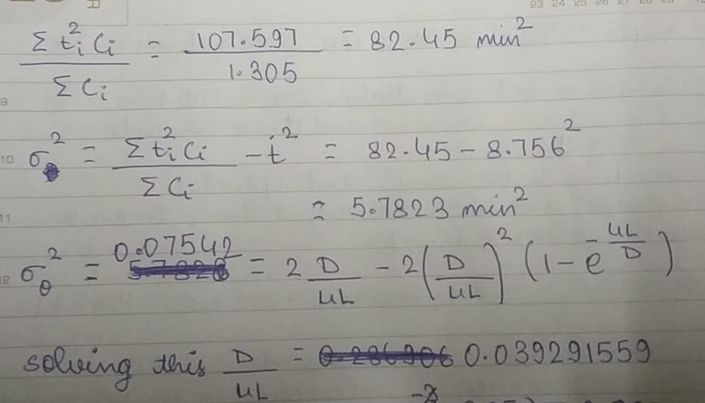 Σ tᵢ² Cᵢ / Σ Cᵢ = 107.597 / 1.305 = 82.45 min²
σ² = Σ tᵢ² Cᵢ / Σ Cᵢ - t̄² = 82.45 - 8.756²
= 5.7823 min²
σθ² = 0.07542 = 2 D/uL - 2 (D/uL)² (1 - e^(-uL/D))
solving this D/uL = 0.039291559